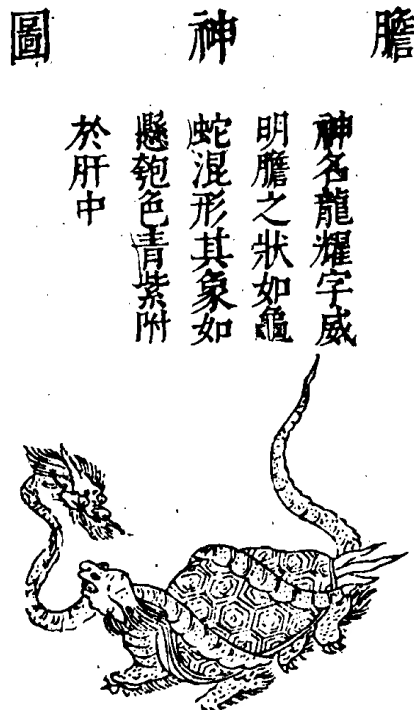 膽神圖
神名龍耀字威
明膽之狀如龜
蛇混形其象如
懸匏色青紫附
於肝中